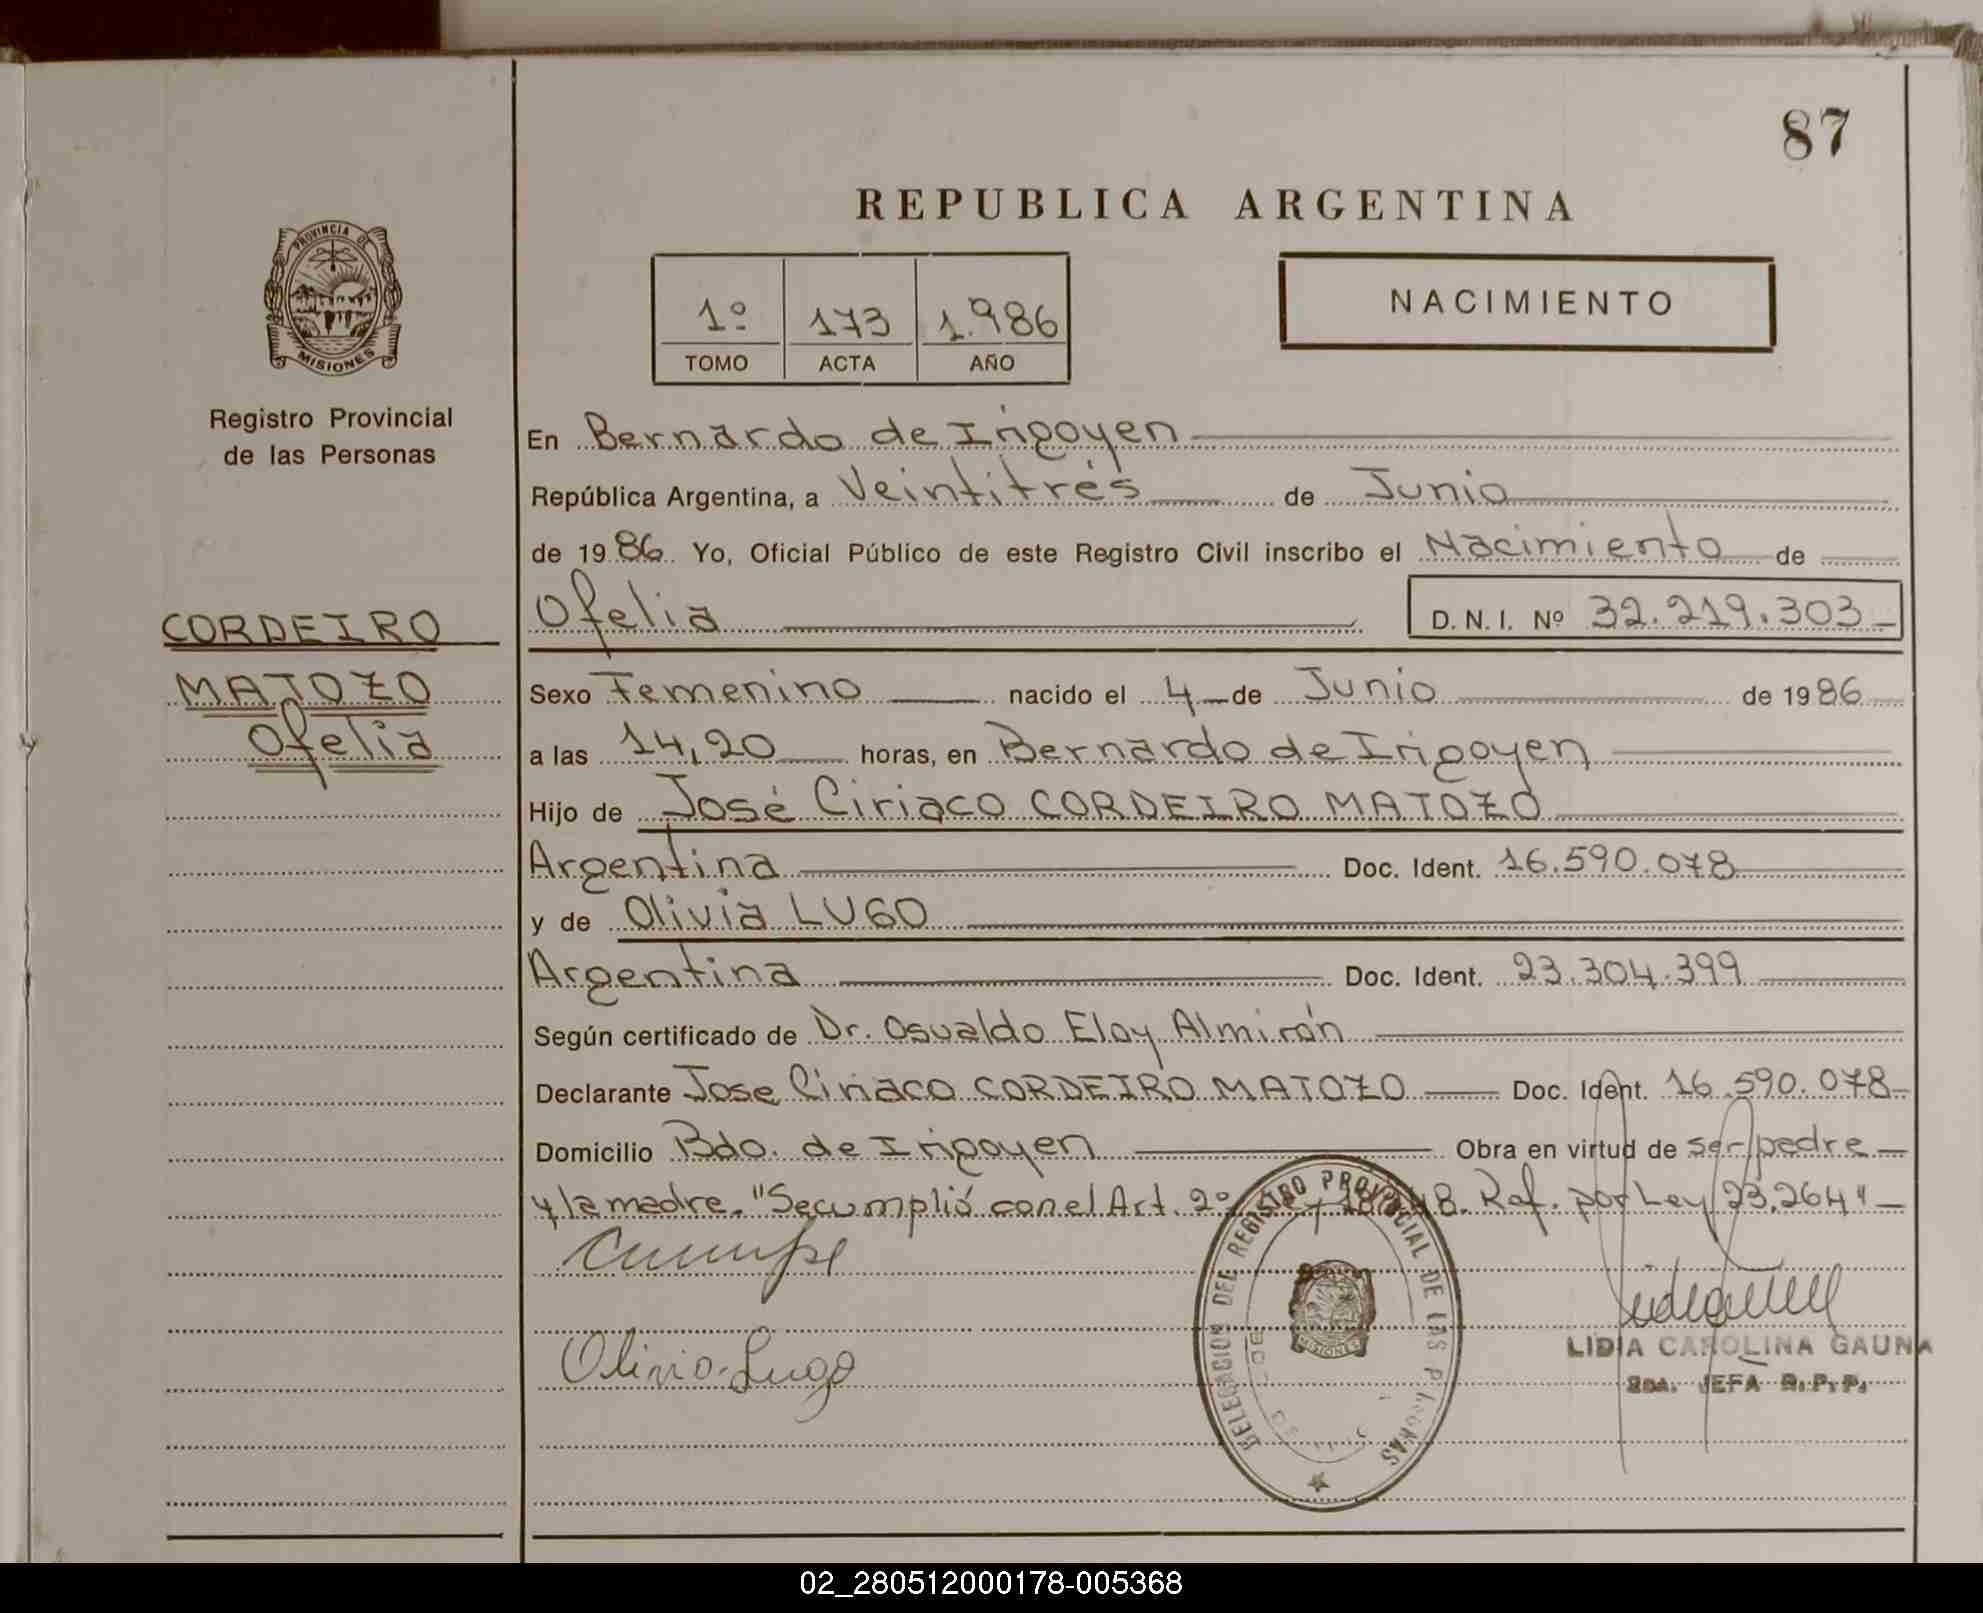 87
REPUBLICA ARGENTINA
PROVINCIA DE
MISIONES
Registro Provincial
de las Personas
1º 173 1.986
TOMO ACTA AÑO
NACIMIENTO
En Bernardo de Irigoyen
República Argentina, a Veintitrés de Junio
de 1986 Yo, Oficial Público de este Registro Civil inscribo el Nacimiento de
Ofelia D. N. I. Nº 32.219.303
CORDEIRO
MATOZO
Ofelia
Sexo Femenino nacido el 4 de Junio de 1986
a las 14,20 horas, en Bernardo de Irigoyen
Hijo de José Ciriaco CORDEIRO MATOZO
Argentina Doc. Ident. 16.590.078
y de Olivia LUGO
Argentina Doc. Ident. 23.304.399
Según certificado de Dr. Osvaldo Eloy Almirón
Declarante Jose Ciriaco CORDEIRO MATOZO Doc. Ident. 16.590.078
Domicilio Bdo. de Irigoyen Obra en virtud de ser padre
y la madre. "Se cumplió con el Art. 2º Ref. por Ley 23.264"
Olivia Lugo
DELEGACION DEL REGISTRO PROVINCIAL DE LAS PERSONAS
MISIONES
LIDIA CAROLINA GAUNA
2DA. JEFA R.P.P.
02_280512000178-005368